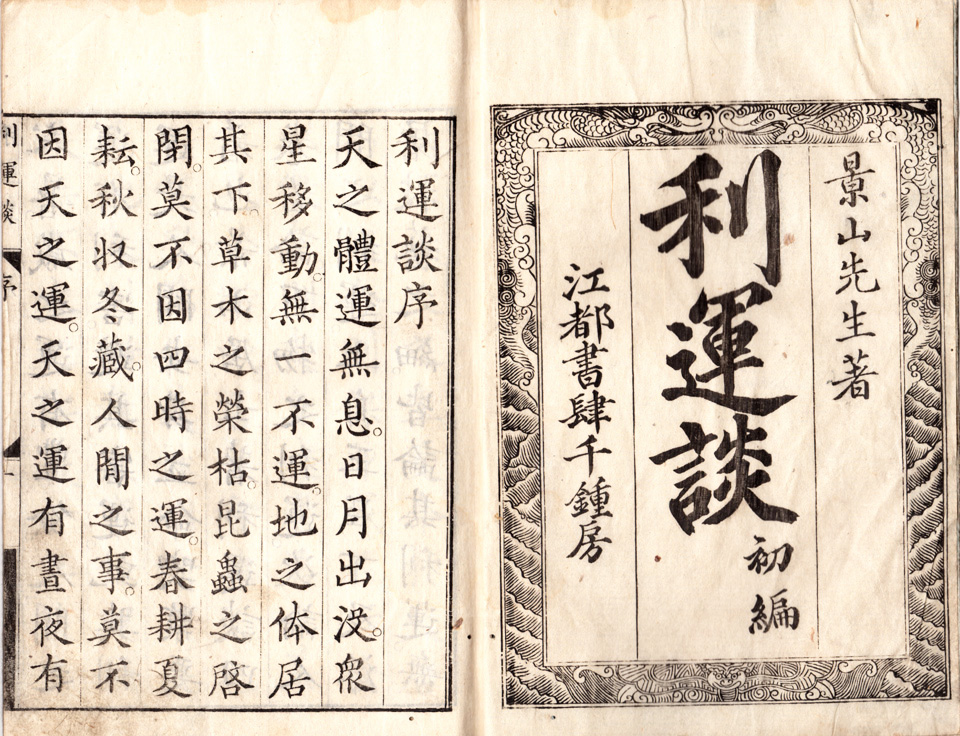 景山先生著
利運談
初編
江都書肆千鍾房
利運談序
天之體運無息。日月出没。衆
星移動。無一不運。地之体居
其下。草木之榮枯。昆蟲之啓
閉。莫不因四時之運。春耕夏
耘。秋収冬藏。人間之事。莫不
因天之運。天之運有晝夜有
利運談
序
一